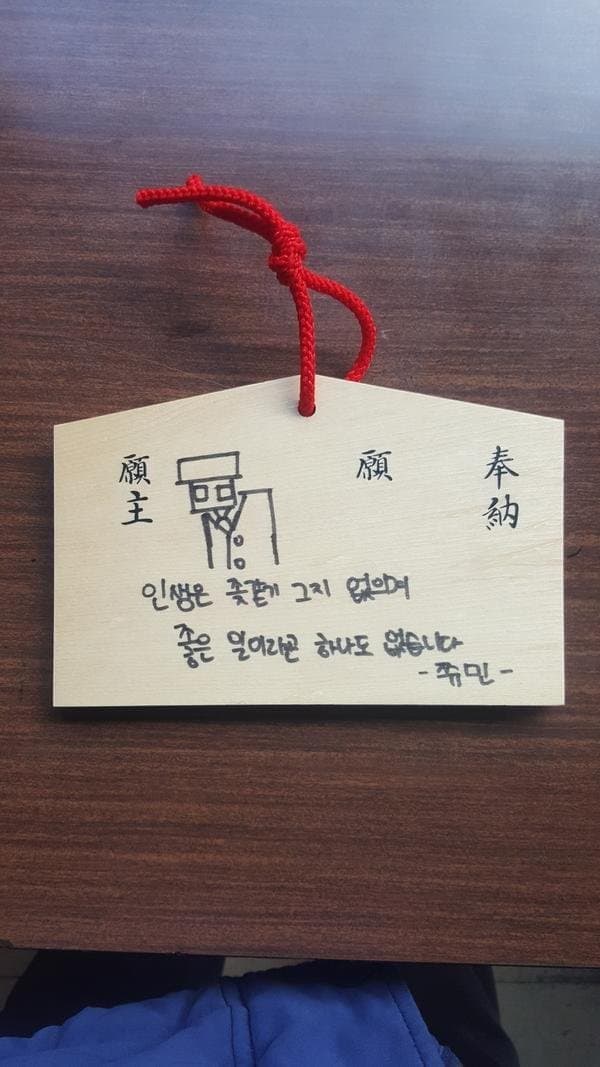 奉納
願
願主
인생은 좆같기 그지 없으며
좋은 일이라곤 하나도 없습니다
- 쮸민 -